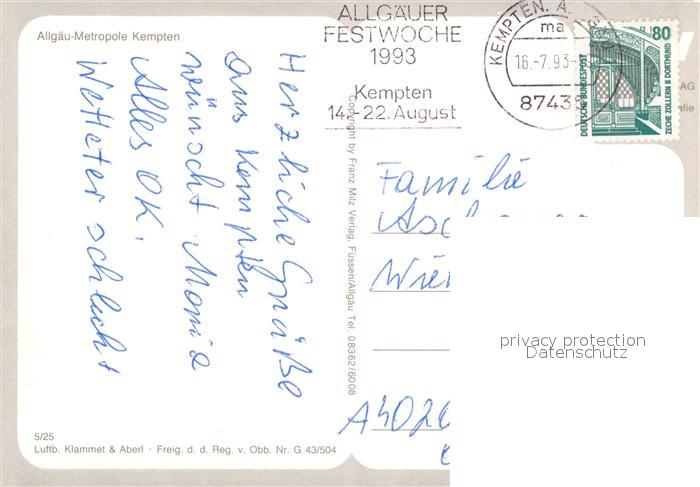 Allgäu-Metropole Kempten
ALLGÄUER
FESTWOCHE
1993
Kempten
14.-22. August
KEMPTEN, A
ma
16.-7.93-
8743
80
DEUTSCHE BUNDESPOST
ZECHE ZOLLERN II DORTMUND
AG
fie
Herzliche Grüße
aus Kempten
wünscht Maria
Alles OK.
Wetter schlecht
Copyright by Franz Milz Verlag, Füssen/Allgäu Tel. 08362/6008
Familie
Wie
A4020
privacy protection
Datenschutz
5/25
Luftb. Klammet & Aberl · Freig. d. d. Reg. v. Obb. Nr. G 43/504